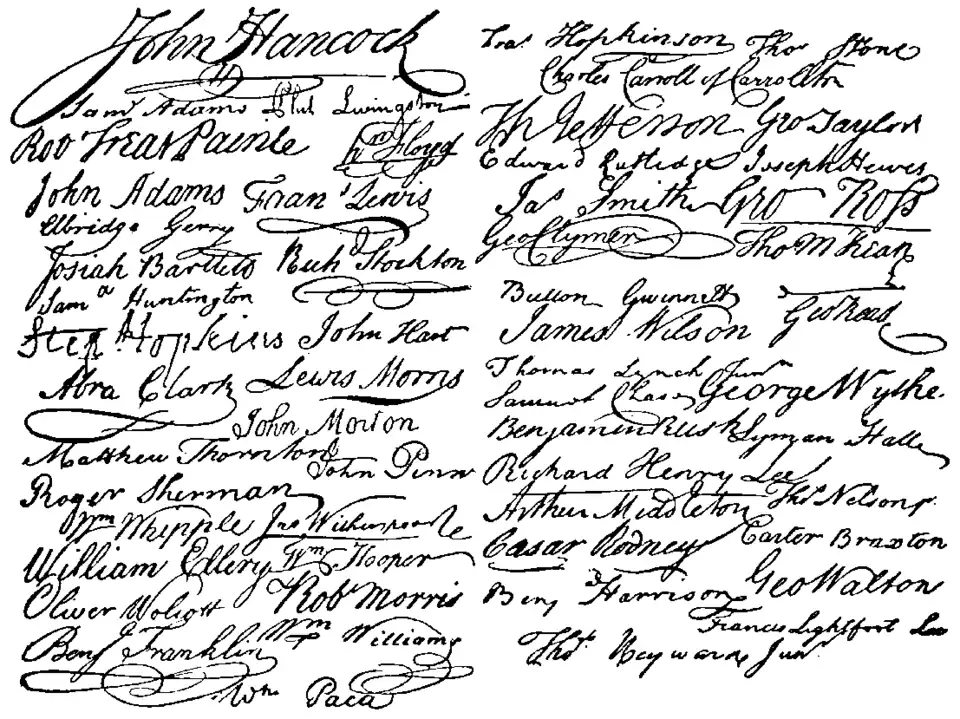 John Hancock
Saml Adams Phil Livingston
Rob Treat Paine Wm Floyd
John Adams Frans Lewis
Elbridge Gerry
Josiah Bartlett Richd Stockton
Saml Huntington
Step Hopkins John Hart
Abra Clark Lewis Morris
John Morton
Matthew Thornton John Penn
Roger Sherman
Wm Whipple Jno Witherspoon
William Ellery Wm Hooper
Oliver Wolcott Robt Morris
Benj Franklin Wm Williams
Wm Paca
Fras Hopkinson Thos Stone
Charles Carroll of Carrollton
Th Jefferson Geo Taylor
Edward Rutledge Joseph Hewes
Jas Smith Geo Ross
Geo Clymer Tho M Kean
Button Gwinnett Geo Read
James Wilson
Thomas Lynch Junr
Samuel Chase George Wythe.
Benjamin Rush Lyman Hall
Richard Henry Lee
Arthur Middleton Thos Nelson jr.
Cæsar Rodney Carter Braxton
Benj Harrison Geo Walton
Francis Lightfoot Lee
Thos Heyward Junr.